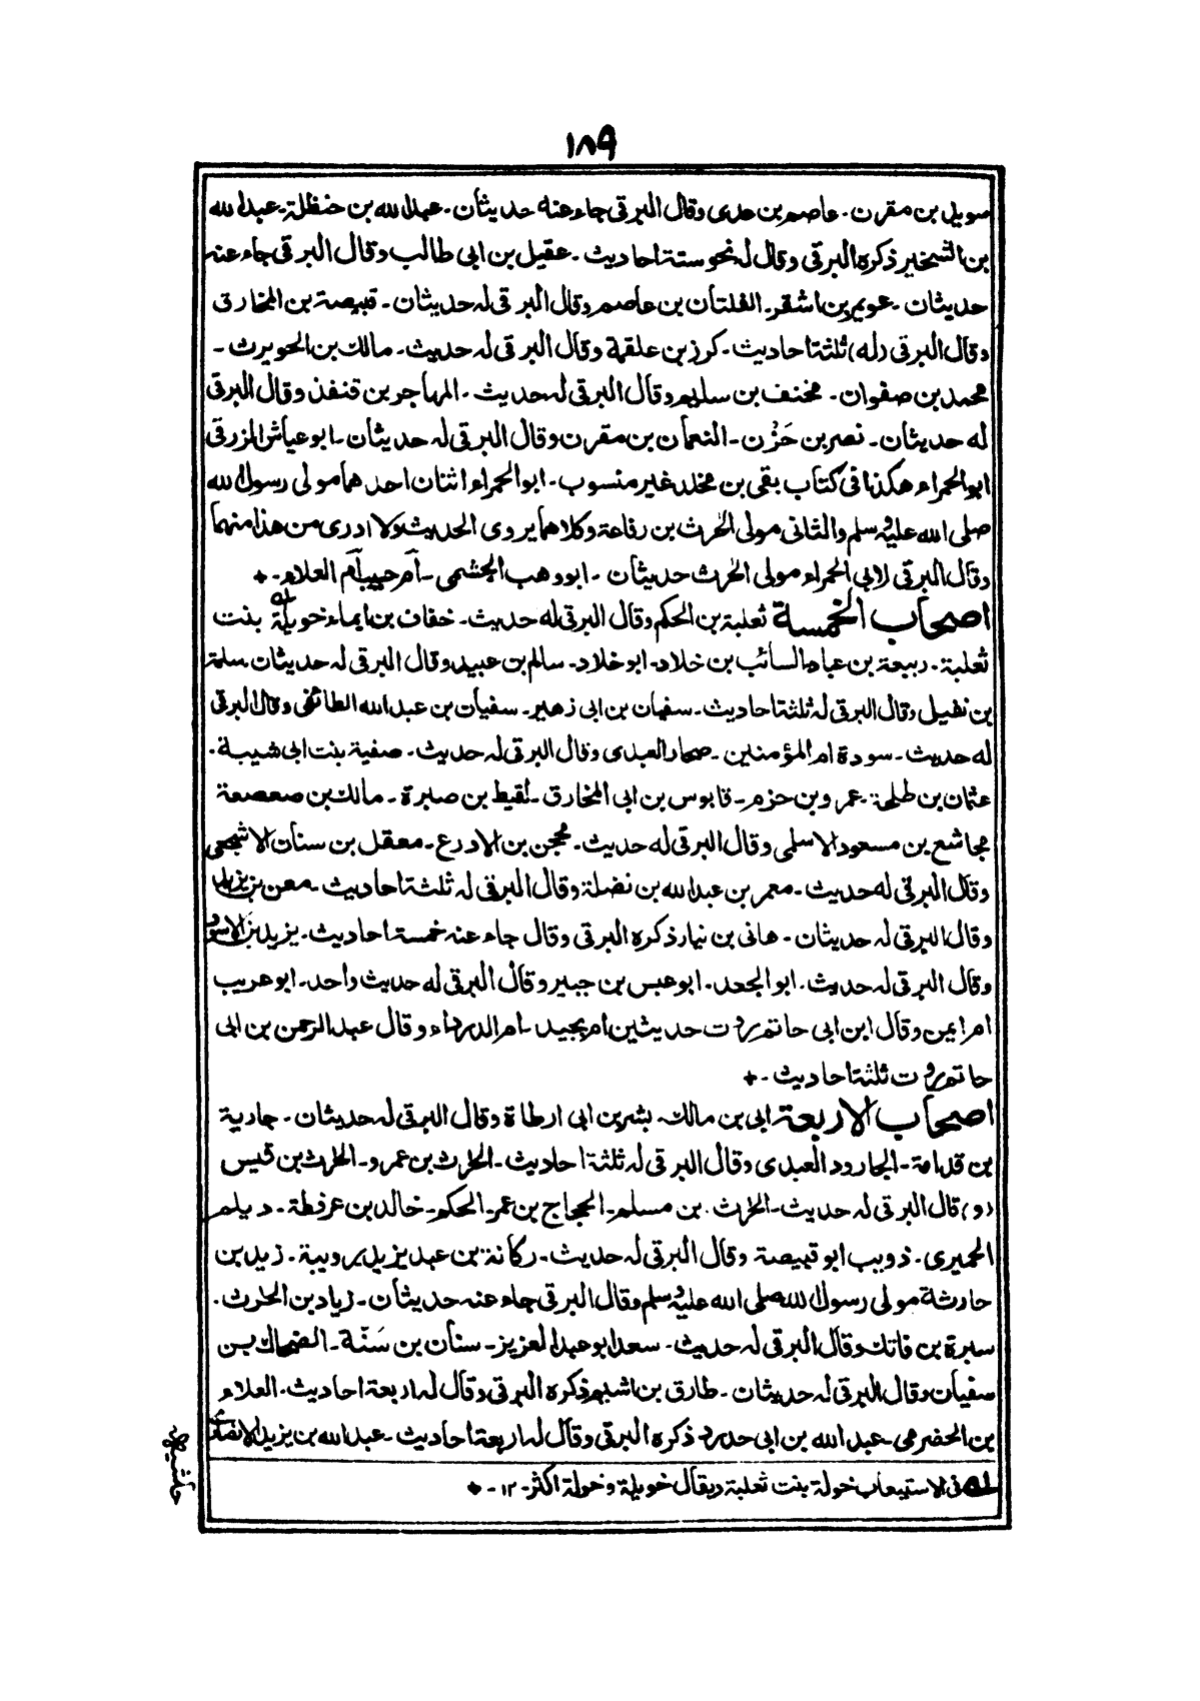 ١٨٩
سويد بن مقرن۔ عاصم بن عدى وقال البرقى جاء عنه حديثان۔ عبدالله بن حنظلة۔ عبدالله
بن الشخير ذكره البرقى وقال له نحو ستة احاديث۔ عقيل بن ابى طالب وقال البرقى جاء عنه
حديثان۔ عويمر بن اشقر۔ الفلتان بن عاصم وقال البرقى له حديثان۔ قبيصة بن المخارق
وقال البرقى (له) ثلثة احاديث۔ كرز بن علقمة وقال البرقى له حديث۔ مالك بن الحويرث۔
محمد بن صفوان۔ مخنف بن سليم وقال البرقى له حديث۔ المهاجر بن قنفذ وقال البرقى
له حديثان۔ نصر بن حَزْن۔ النعمان بن مقرن وقال البرقى له حديثان۔ ابو عياش الزرقى
ابو الحمراء هكذا فى كتاب بقى بن مخلد غير منسوب۔ ابو الحمراء اثنان احدهما مولى رسول الله
صلى الله عليه وسلم والثانى مولى الحرث بن رفاعة وكلاهما يروى الحديث ولا ادرى من هذا منهما
وقال البرقى لابى الحمراء مولى الحرث حديثان۔ ابو وهب الجشمى۔ اُم حبيب اُم العلاء۔
اصحاب الخمسة ثعلبة بن الحكم وقال البرقى له حديث۔ خفاف بن ايماء خويلة بنت
ثعلبة۔ ربيعة بن عباد السائب بن خلاد۔ ابو خلاد۔ سالم بن عبيد وقال البرقى له حديثان۔ سلمة
بن نفيل وقال البرقى له ثلثة احاديث۔ سفيان بن ابى زهير۔ سفيان بن عبدالله الطائفى وقال البرقى
له حديث۔ سودة ام المؤمنين۔ صحار العبدى وقال البرقى له حديث۔ صفية بنت ابى شيبة۔
عثمان بن طلحة۔ عمرو بن حزم۔ قابوس بن ابى المخارق۔ لقيط بن صبرة۔ مالك بن صعصعة
مجاشع بن مسعود الاسلمى وقال البرقى له حديث۔ محجن بن الادرع۔ معقل بن سنان الاشجعى
وقال البرقى له حديث۔ معمر بن عبدالله بن نضلة وقال البرقى له ثلثة احاديث۔ معن بن يزيد
وقال البرقى له حديثان۔ هانى بن نيار ذكره البرقى وقال جاء عنه خمسة احاديث۔ يزيد بن الاسود
وقال البرقى له حديث۔ ابو الجعد۔ ابو عبس بن جبير وقال البرقى له حديث واحد۔ ابو عريب
ام ايمن وقال ابن ابى حاتم روت حديثين ام بجيد۔ ام الدرداء وقال عبد الرحمن بن ابى
حاتم روت ثلثة احاديث۔
اصحاب الاربعة ابى بن مالك۔ بشر بن ابى ارطاة وقال البرقى له حديثان۔ جارية
بن قدامة۔ الجارود العبدى وقال البرقى له ثلثة احاديث۔ الحرث بن عمرو۔ الحرث بن قيس
(و) قال البرقى له حديث۔ الحرث بن مسلم۔ الحجاج بن عمر۔ الحكم۔ خالد بن عرفطة۔ ديلم
الحميرى۔ ذويب ابو قبيصة وقال البرقى له حديث۔ ركانة بن عبد يزيد بروبية۔ زيد بن
حارثة مولى رسول الله صلى الله عليه وسلم وقال البرقى جاء عنه حديثان۔ زياد بن الحرث۔
سبرة بن فاتك وقال البرقى له حديث۔ سعد ابو عبد العزيز۔ سنان بن سَنّة۔ الضحاك بن
سفيان وقال البرقى له حديثان۔ طارق بن اشيم ذكره البرقى وقال له اربعة احاديث۔ العلاء
بن الحضرمى۔ عبدالله بن ابى حدرد ذكره البرقى وقال له اربعة احاديث۔ عبدالله بن يزيد الانصارى
له فى الاستيعاب خولة بنت ثعلبة ويقال خويلة وخولة اكثر۔ ١٢۔
حاشيه